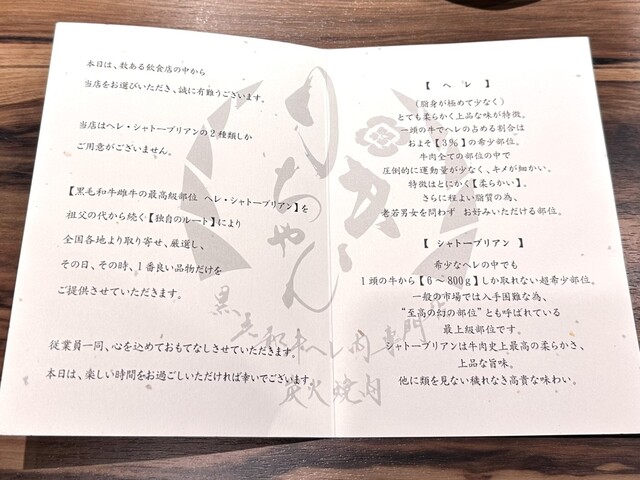 本日は、数ある飲食店の中から
当店をお選びいただき、誠に有難うございます。
当店はヘレ・シャトーブリアンの2種類しか
ご用意がございません。
【黒毛和牛雌牛の最高級部位 ヘレ・シャトーブリアン】を
祖父の代から続く【独自のルート】により
全国各地より取り寄せ、厳選し、
その日、その時、1番良い品物だけを
ご提供させていただきます。
従業員一同、心を込めておもてなしさせていただきます。
本日は、楽しい時間をお過ごしいただければ幸いでございます。
【 ヘ レ 】
(脂身が極めて少なく)
とても柔らかく上品な味が特徴。
一頭の牛でヘレの占める割合は
およそ【3%】の希少部位。
牛肉全ての部位の中で
圧倒的に運動量が少なく、キメが細かい。
特徴はとにかく【柔らかい】。
さらに程よい脂質の為、
老若男女を問わず お好みいただける部位。
【 シャトーブリアン 】
希少なヘレの中でも
1頭の牛から【6～800g】しか取れない超希少部位。
一般の市場では入手困難な為、
“至高の幻の部位”とも呼ばれている
最上級部位です。
シャトーブリアンは牛肉史上最高の柔らかさ、
上品な旨味。
他に類を見ない穢れなき高貴な味わい。
黒毛和牛ヘレ肉専門
炭火焼肉